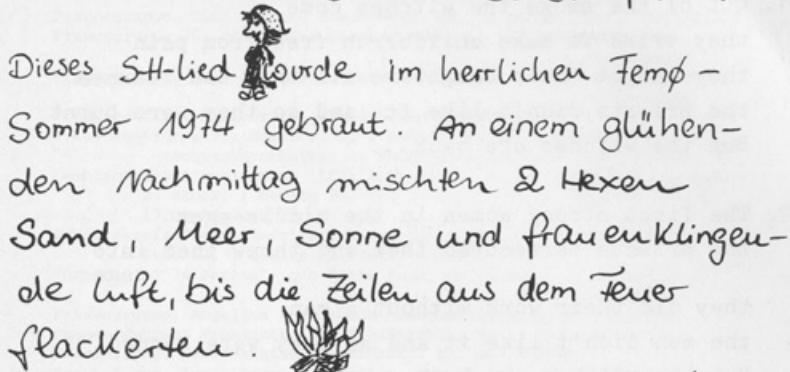 Dieses SH-lied wurde im herrlichen Femø-
Sommer 1974 gebraut. An einem glühen-
den Nachmittag mischten 2 Hexen
Sand, Meer, Sonne und frauenklingen-
de Luft, bis die Zeilen aus dem Feuer
flackerten.